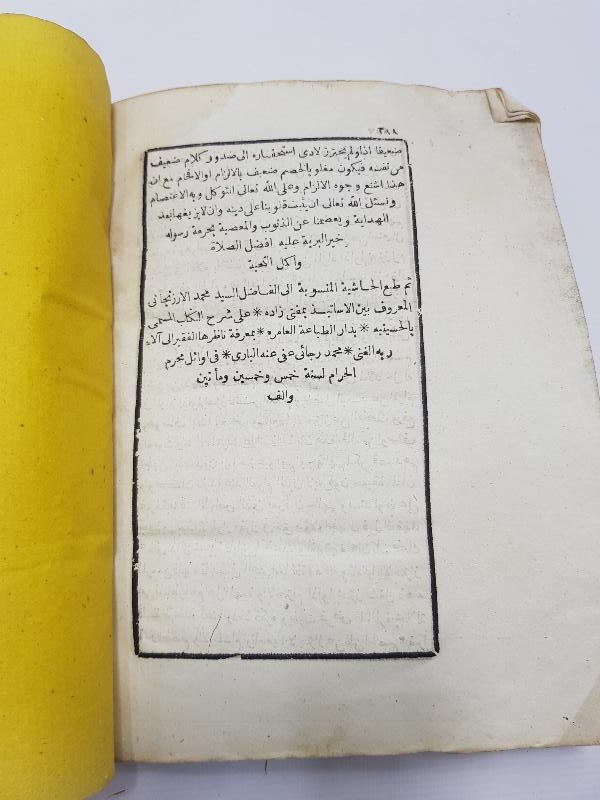 ٢٨٨
ضعيفا اذا ولم يحترز لادى استحقاره الى صدور كلام ضعيف
من نفسه فيكون مغلو با لخصم ضعيف بالالزام او الافحام مع ان
هذا اشنع وجوه الالزام وعلى الله تعالى اتوكل وبه الاعتصام
ونسئل الله تعالى ان يثبت قلوبنا على دينه وان لا يزيغها بعد
الهداية ويعصمنا عن الذنوب والمعصية بحرمة رسوله
خير البرية عليه افضل الصلاة
واكمل التحية
تم طبع الحاشية المنسوبة الى الفاضل السيد محمد الارزنجانى
المعروف بين الاساتيذ بمفتى زاده * على شرح الكتاب المسمى
بالحسينيه * بدار الطباعة العامره * بمعرفة ناظرها الفقير الى آلاء
ربه الغنى * محمد رجائى عفى عنه البارى * فى اوائل محرم
الحرام لسنة خمس وخمسين ومأتين
والف